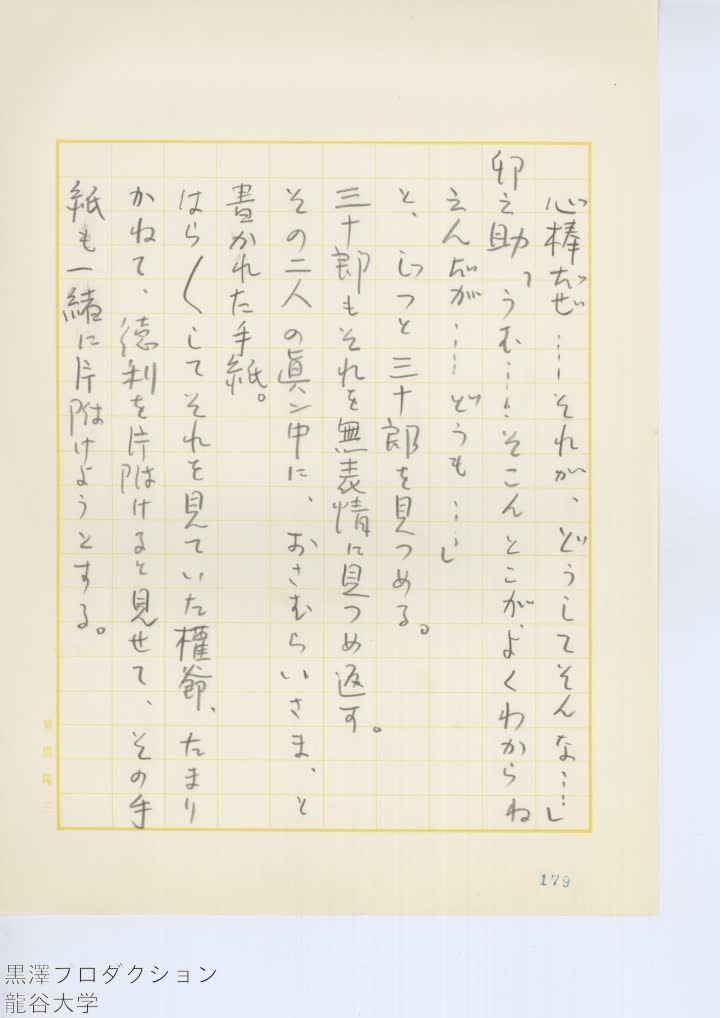 心棒だぜ……それが、どうしてそんな……」
卯之助「うむ……そこんとこが、よくわからね
えんだが……どうも……」
と、じっと三十郎を見つめる。
三十郎もそれを無表情に見つめ返す。
その二人の眞ン中に、おさむらいさま、と
書かれた手紙。
はら〳〵してそれを見ていた權爺、たまり
かねて、徳利を片附けると見せて、その手
紙も一緒に片附けようとする。
179
黒澤プロダクション
龍谷大学